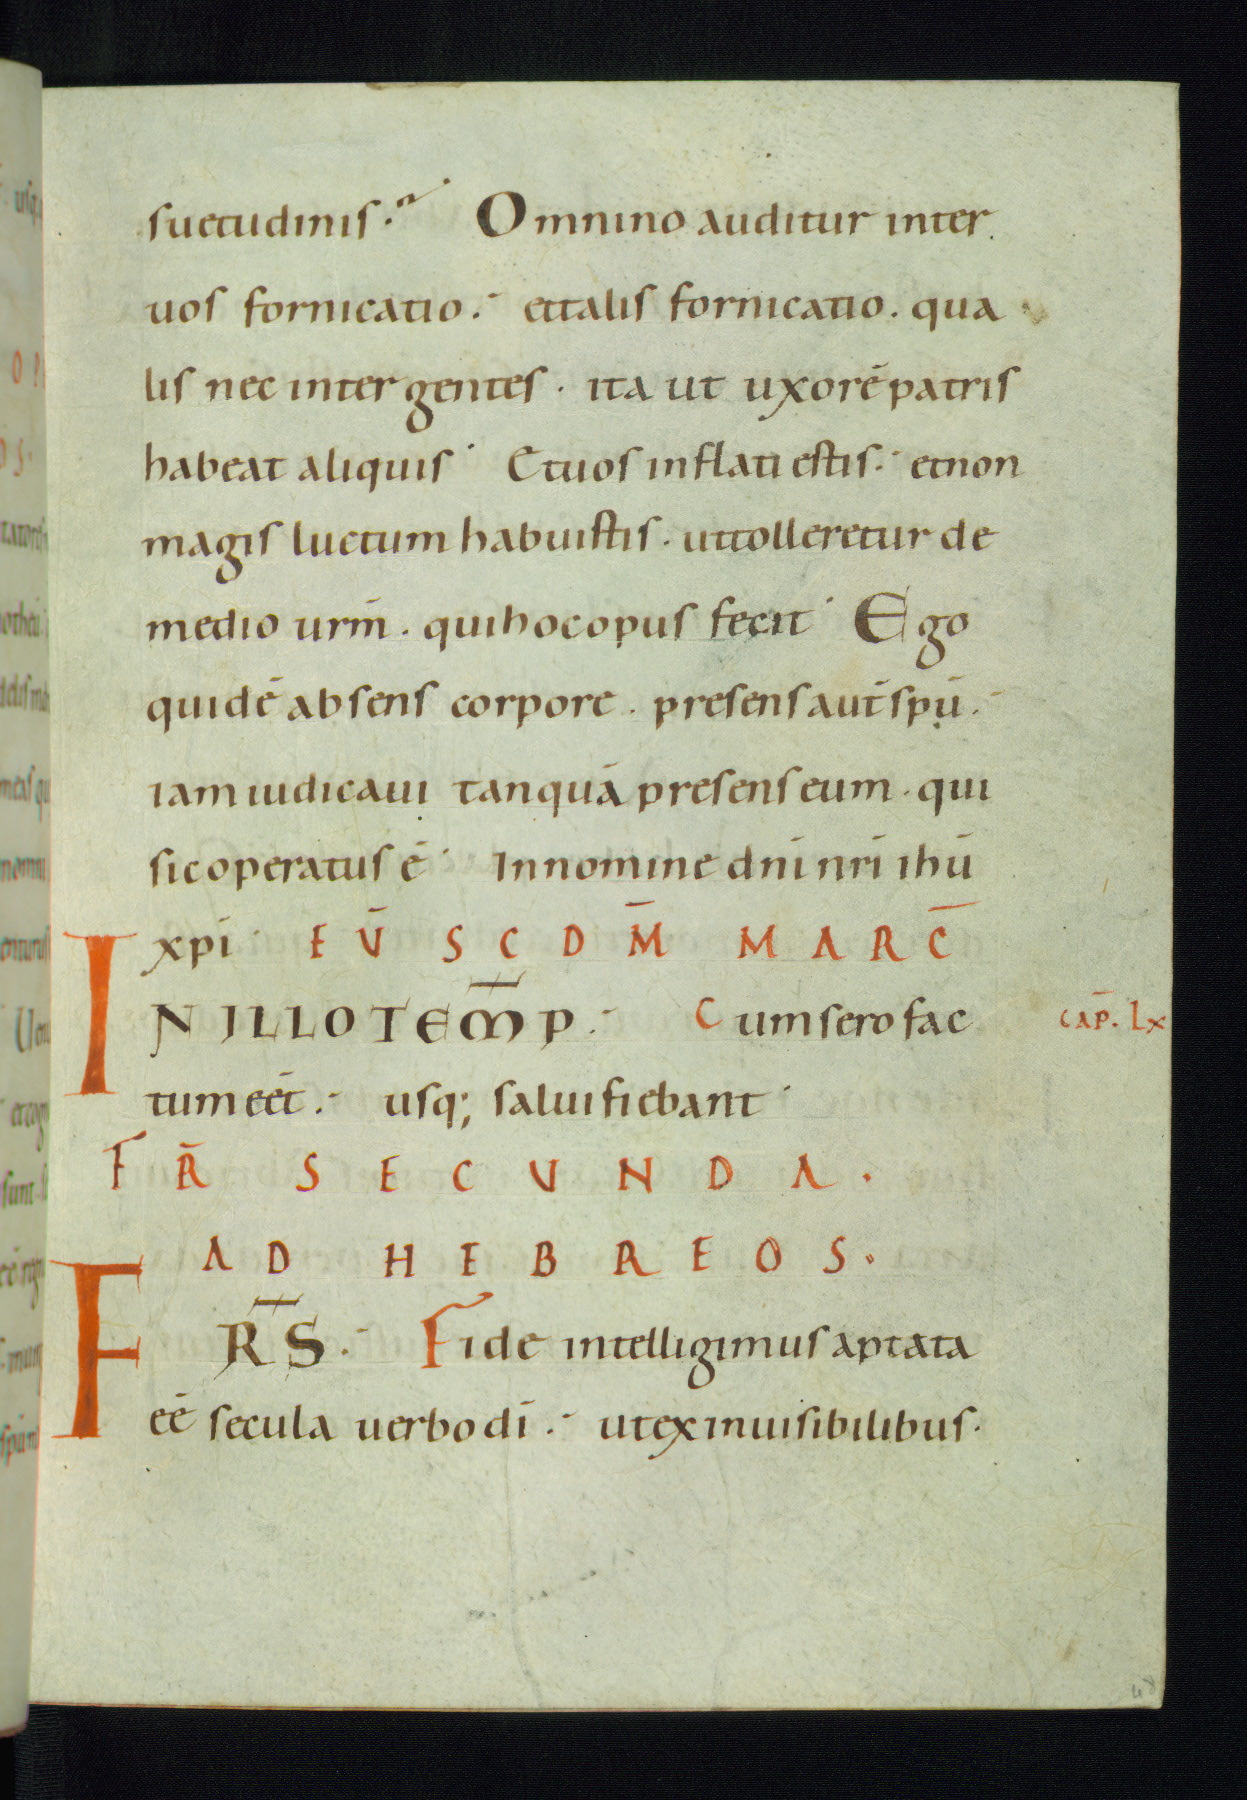 suetudinis. Omnino auditur inter
uos fornicatio. et talis fornicatio. qua
lis nec inter gentes. ita ut uxorē patris
habeat aliquis Et uos inflati estis. et non
magis luctum habuistis. ut tolleretur de
medio urm̄. qui hoc opus fecit Ego
quidē absens corpore. presens aut̄ spū.
iam iudicaui tanquā presens eum. qui
sic operatus ē In nomine dnī nrī ihū
xpī EV̄ SCDM̄ MARC̄
IN ILLO TEM̄P. Cum sero fac
CAP̄. LX
tum eēt. usq; salui fiebant
FR̄ SECUNDA.
AD HEBREOS.
FR̄S. Fide intelligimus aptata
eē secula uerbo dī. ut ex inuisibilibus.
48